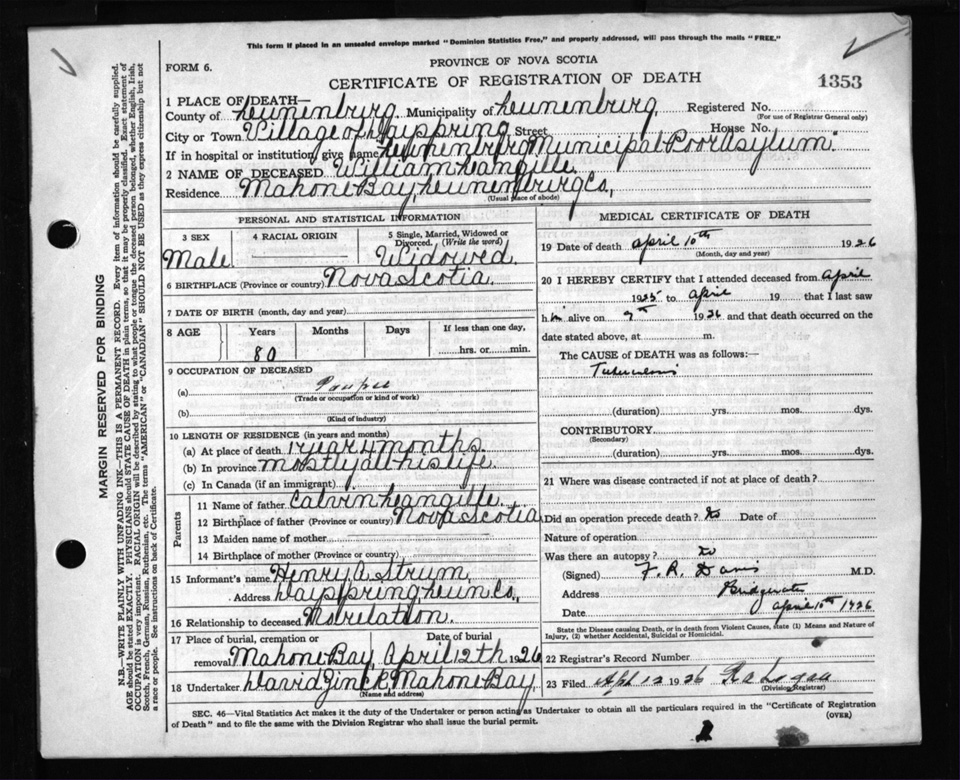 This form if placed in an unsealed envelope marked "Dominion Statistics Free," and properly addressed, will pass through the mails "FREE."
PROVINCE OF NOVA SCOTIA
FORM 6.
CERTIFICATE OF REGISTRATION OF DEATH
1353
1 PLACE OF DEATH—
County of Lunenburg Municipality of Lunenburg Registered No.
(For use of Registrar General only)
City or Town Village of Dayspring Street House No.
If in hospital or institution, give name Lunenburg Municipal Poor Asylum.
2 NAME OF DECEASED William Langille.
Residence Mahone Bay, Lunenburg Co,
(Usual place of abode)
PERSONAL AND STATISTICAL INFORMATION
3 SEX 4 RACIAL ORIGIN 5 Single, Married, Widowed or Divorced. (Write the word)
Male Widowed.
6 BIRTHPLACE (Province or country) Nova Scotia.
7 DATE OF BIRTH (month, day and year)
8 AGE Years Months Days If less than one day,
80 hrs. or min.
9 OCCUPATION OF DECEASED
(a) Pauper
(Trade or occupation or kind of work)
(b)
(Kind of industry)
10 LENGTH OF RESIDENCE (in years and months)
(a) At place of death 1 year 4 months.
(b) In province mostly all his life.
(c) In Canada (if an immigrant)
Parents
11 Name of father Calvin Langille.
12 Birthplace of father (Province or country) Nova Scotia
13 Maiden name of mother
14 Birthplace of mother (Province or country)
15 Informant's name Henry A. Strum.
Address Dayspring Lun. Co.,
16 Relationship to deceased No relation.
17 Place of burial, cremation or removal Date of burial
Mahone Bay April 12th 1926
18 Undertaker David Zinck, Mahone Bay.
(Name and address)
MEDICAL CERTIFICATE OF DEATH
19 Date of death April 10th 1926
(Month, day and year)
20 I HEREBY CERTIFY that I attended deceased from April
1925 to April 19 that I last saw
him alive on 1926 and that death occurred on
date stated above, at m.
The CAUSE of DEATH was as follows:—
Tuberculosis
(duration) yrs. mos. dys.
CONTRIBUTORY
(Secondary)
(duration) yrs. mos. dys.
21 Where was disease contracted if not at place of death?
Did an operation precede death? No Date of
Nature of operation
Was there an autopsy? No
(Signed) F. R. Davis M.D.
Address Bridgewater
Date April 10th 1926
State the Disease causing Death, or in death from Violent Causes, state (1) Means and Nature of
Injury, (2) whether Accidental, Suicidal or Homicidal.
22 Registrar's Record Number
23 Filed Apl 12 1926
(Division Registrar)
SEC. 46—Vital Statistics Act makes it the duty of the Undertaker or person acting as Undertaker to obtain all the particulars required in the "Certificate of Registration
of Death" and to file the same with the Division Registrar who shall issue the burial permit.
(OVER)
MARGIN RESERVED FOR BINDING
N.B.—WRITE PLAINLY WITH UNFADING INK—THIS IS A PERMANENT RECORD. Every item of information should be carefully supplied.
AGE should be stated EXACTLY. PHYSICIANS should STATE CAUSE OF DEATH in plain terms, so that it may be properly classified. Exact statement of
OCCUPATION is very important. RACIAL ORIGIN will be described by stating to what people or tongue the deceased person belonged, whether English, Irish,
Scotch, French, German, Russian, Ruthenian, etc. The terms "AMERICAN" or "CANADIAN" SHOULD NOT BE USED as they express citizenship but not
a race or people. See instructions on back of Certificate.